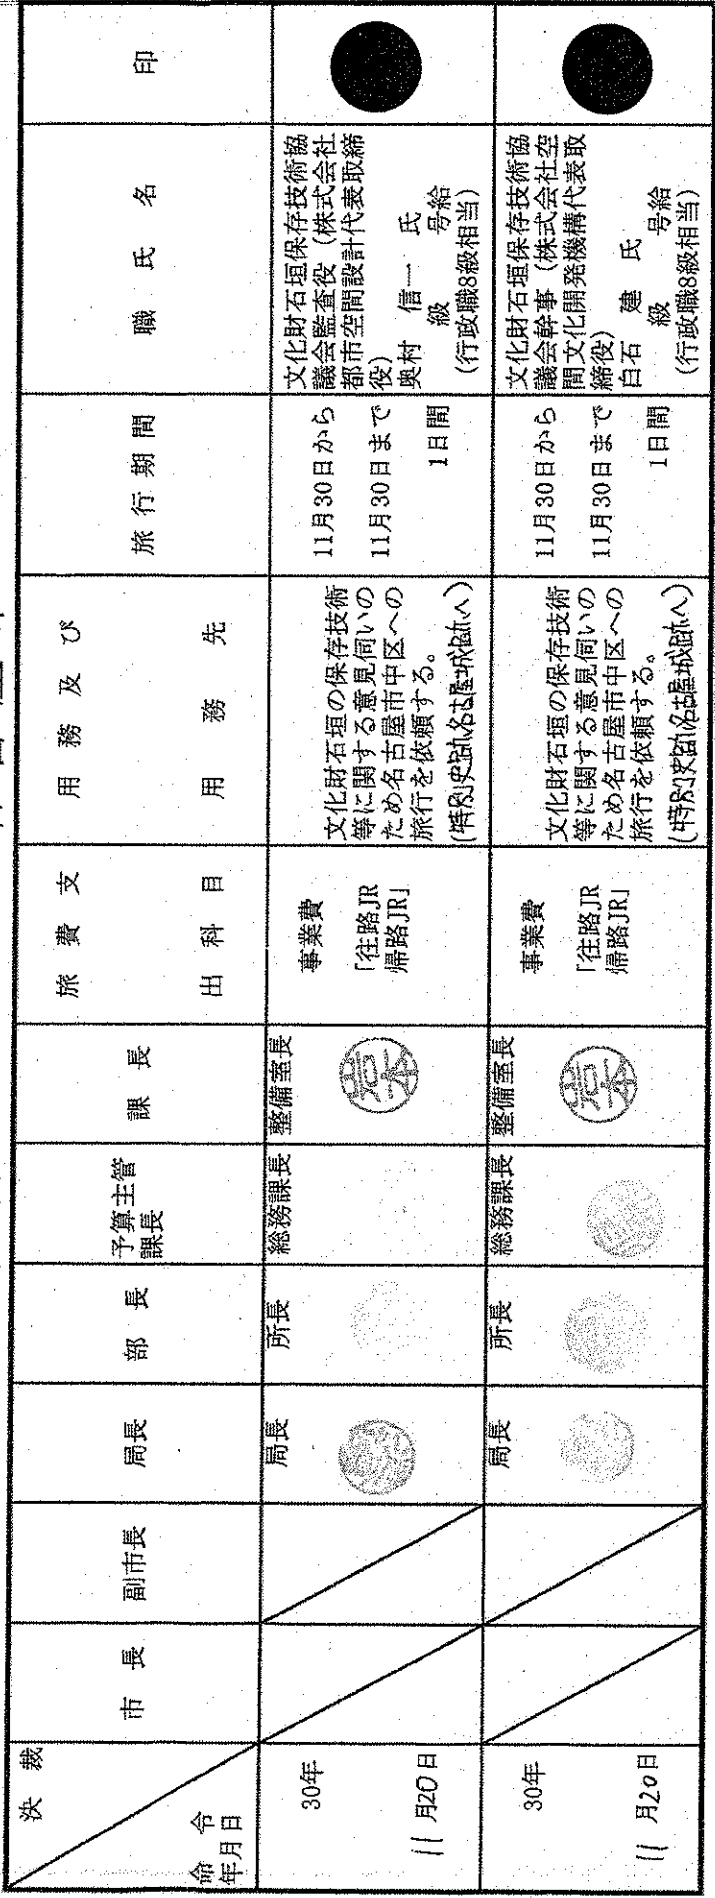 決裁
命令
年月日
市長
副市長
局長
部長
予算主管
課長
課長
旅費支
出科目
用務及び
用務先
旅行期間
職氏名
印
30年
11月20日
局長
所長
総務課長
整備室長
岩本
事業費
「往路JR
帰路JR」
文化財石垣の保存技術
等に関する意見伺いの
ため名古屋市中区への
旅行を依頼する。
(特別史跡名古屋城跡へ)
11月30日から
11月30日まで
1日間
文化財石垣保存技術協
議会監査役(株式会社
都市空間設計代表取締
役)
奥村 信一 氏
級 号給
(行政職8級相当)
30年
11月20日
局長
所長
総務課長
整備室長
岩本
事業費
「往路JR
帰路JR」
文化財石垣の保存技術
等に関する意見伺いの
ため名古屋市中区への
旅行を依頼する。
(特別史跡名古屋城跡へ)
11月30日から
11月30日まで
1日間
文化財石垣保存技術協
議会幹事(株式会社空
間文化開発機構代表取
締役)
白石 建 氏
級 号給
(行政職8級相当)